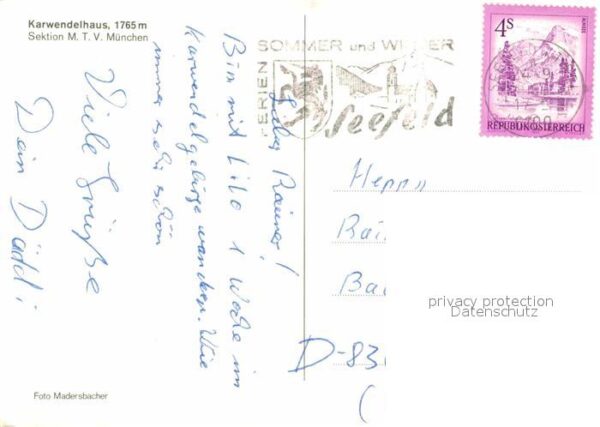 Karwendelhaus, 1765 m
Sektion M. T. V. München
FERIEN
SOMMER und WINTER
Seefeld
4S
REPUBLIK ÖSTERREICH
Lieber Rainer!
Bin mit Lilo 1 Woche im
Karwendelgebirge wandern. Wie
immer sehr schön
Viele Grüße
Dein Däddi
Herrn
Rai
Ba
D-83
(
privacy protection
Datenschutz
Foto Madersbacher